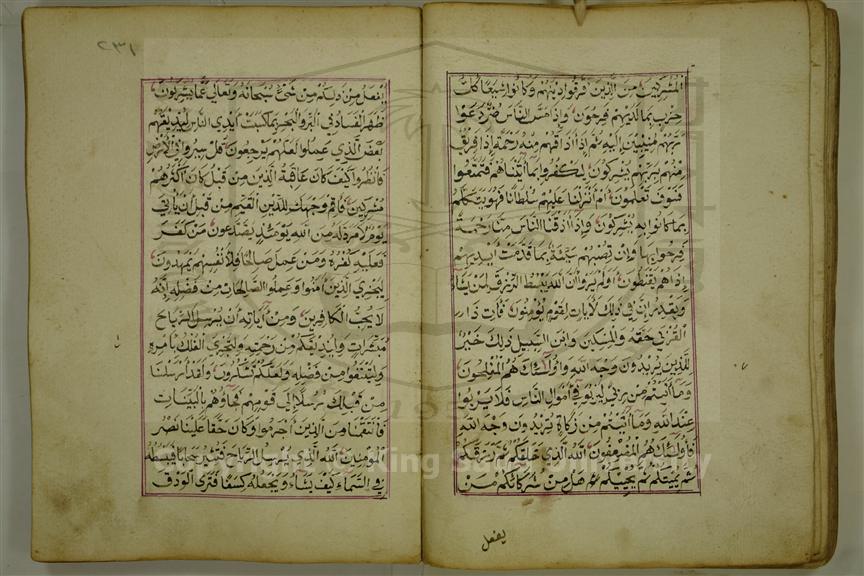 المشركين من الذين فرقوا دينهم وكانوا شيعا كل
حزب بما لديهم فرحون واذا مس الناس ضر دعوا
ربهم منيبين اليه ثم اذا اذاقهم منه رحمة اذا فريق
منهم بربهم يشركون ليكفروا بما اتيناهم فتمتعوا
فسوف تعلمون ام انزلنا عليهم سلطانا فهو يتكلم
بما كانوا به يشركون واذا اذقنا الناس رحمة
فرحوا بها وان تصبهم سيئة بما قدمت ايديهم
اذا هم يقنطون اولم يروا ان الله يبسط الرزق لمن يشاء
ويقدر ان في ذلك لايات لقوم يؤمنون فآت ذا
القربى حقه والمسكين وابن السبيل ذلك خير
للذين يريدون وجه الله واولئك هم المفلحون
وما اتيتم من ربا ليربو في اموال الناس فلا يربوا
عند الله وما اتيتم من زكاة تريدون وجه الله
فاولئك هم المضعفون الله الذي خلقكم ثم رزقكم
ثم يميتكم ثم يحييكم هل من شركائكم من
يفعل
٢٣١
يفعل من ذلكم من شيء سبحانه وتعالى عما يشركون
ظهر الفساد في البر والبحر بما كسبت ايدي الناس ليذيقهم
بعض الذي عملوا لعلهم يرجعون قل سيروا في الارض
فانظروا كيف كان عاقبة الذين من قبل كان اكثرهم
مشركين فاقم وجهك للدين القيم من قبل ان ياتي
يوم لا مرد له من الله يومئذ يصدعون من كفر
فعليه كفره ومن عمل صالحا فلانفسهم يمهدون
ليجزي الذين امنوا وعملوا الصالحات من فضله انه
لا يحب الكافرين ومن اياته ان يرسل الرياح
مبشرات وليذيقكم من رحمته ولتجري الفلك بامره
ولتبتغوا من فضله ولعلكم تشكرون ولقد ارسلنا
من قبلك رسلا الى قومهم فجاؤهم بالبينات
فانتقمنا من الذين اجرموا وكان حقا علينا نصر
المؤمنين الله الذي يرسل الرياح فتثير سحابا فيبسطه
في السماء كيف يشاء ويجعله كسفا فترى الودق
1957
Copyright © King Saud University